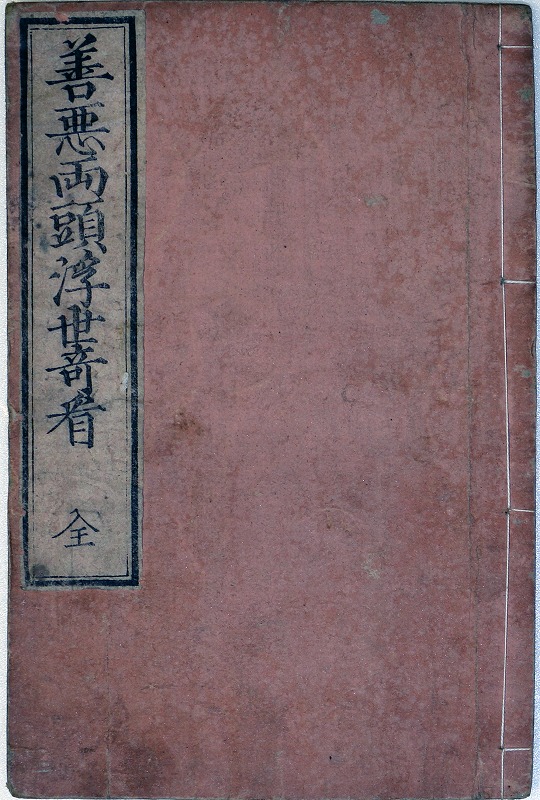 善悪両頭浮世奇看
全